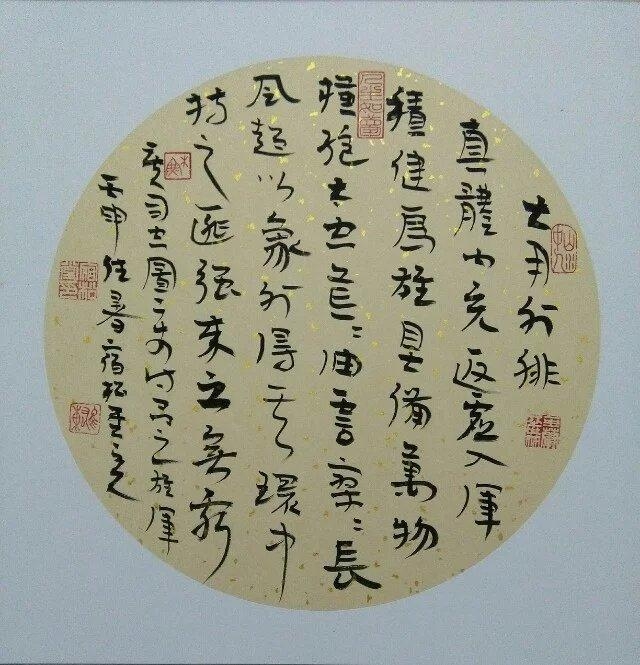 大用外腓
真體內充返虛入渾
積健爲雄具備萬物
橫絕太空荒〻油雲寥〻長
風超以象外得其環中
持之匪強來之無窮
司空圖二十四詩品之雄渾
丙申 暑宿松